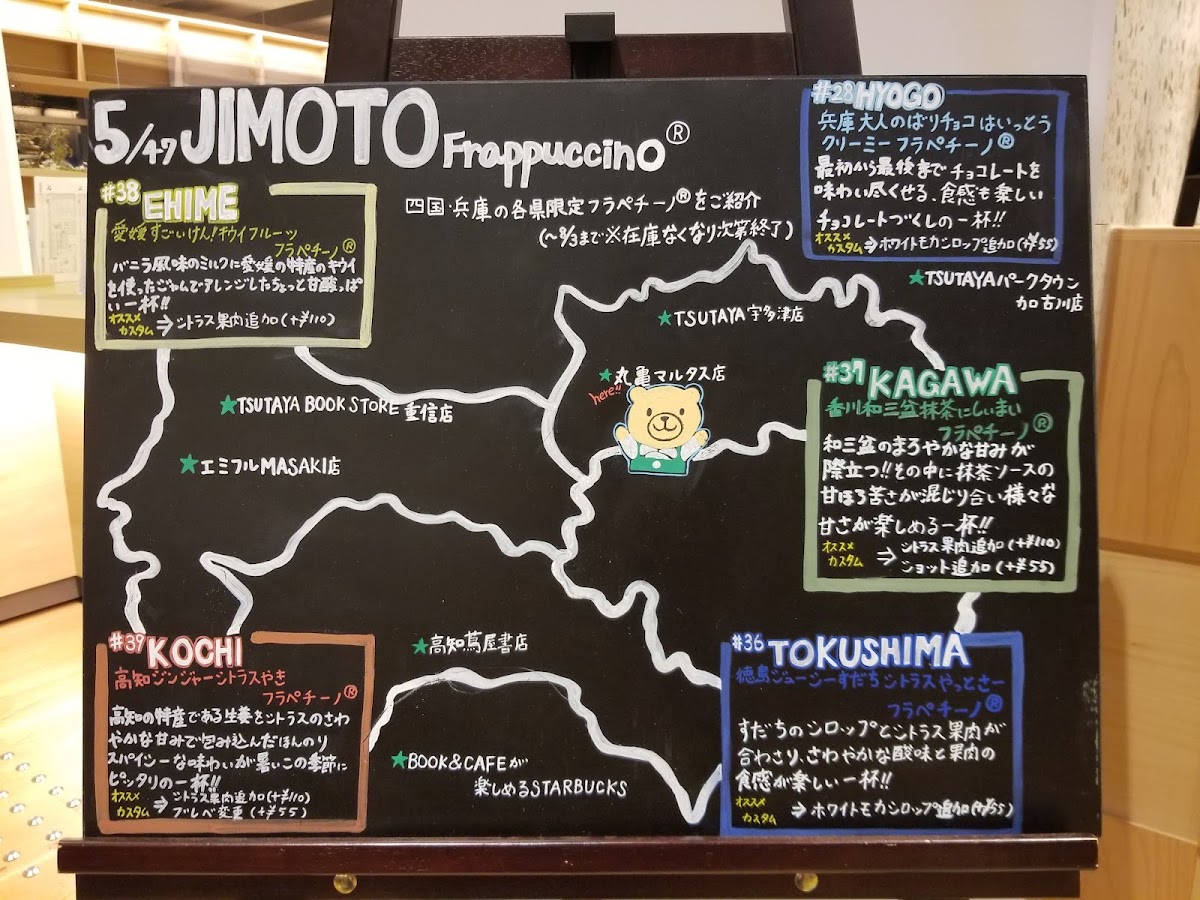 5/47 JIMOTO Frappuccino®
四国・兵庫の各県限定フラペチーノ®をご紹介
(~8/3まで※在庫なくなり次第終了)
#28 HYOGO
兵庫 大人のばりチョコ はいっとう
クリーミー フラペチーノ®
最初から最後までチョコレートを
味わい尽くせる、食感も楽しい
チョコレートづくしの一杯!!
オススメ
カスタム ⇒ホワイトモカシロップ追加(+¥55)
#38 EHIME
愛媛 すごいけん!キウイフルーツ
フラペチーノ®
バニラ風味のミルクに愛媛の特産のキウイ
を使ったじゃムでアレンジしたちょっと甘酸っぱ
い一杯!!
オススメ
カスタム ⇒シトラス果肉追加(+¥110)
★TSUTAYAパークタウン
加古川店
★TSUTAYA宇多津店
★丸亀マルタス店
here!!
★TSUTAYA BOOK STORE 重信店
★エミフルMASAKI店
#37 KAGAWA
香川 和三盆抹茶にしぃまい
フラペチーノ®
和三盆のまろやかな甘みが
際立つ!!その中に抹茶ソースの
甘ほろ苦さが混じり合い様々な
甘さが楽しめる一杯!!
オススメ
カスタム ⇒シトラス果肉追加(+¥110)
ショット追加(+¥55)
#39 KOCHI
高知 ジンジャーシトラスやき
フラペチーノ®
高知の特産である生姜をシトラスのさわ
やかな甘みで包み込んだほんのり
スパイシーな味わいが暑いこの季節に
ピッタリの一杯!!
オススメ
カスタム ⇒シトラス果肉追加(+¥110)
ブレベ変更(+¥55)
★高知蔦屋書店
★BOOK&CAFEが
楽しめるSTARBUCKS
#36 TOKUSHIMA
徳島 ジューシーすだち シトラス やっとさー
フラペチーノ®
すだちのシロップとシトラス果肉が
合わさり、さわやかな酸味と果肉の
食感が楽しい一杯!!
オススメ
カスタム ⇒ホワイトモカシロップ追加(+¥55)